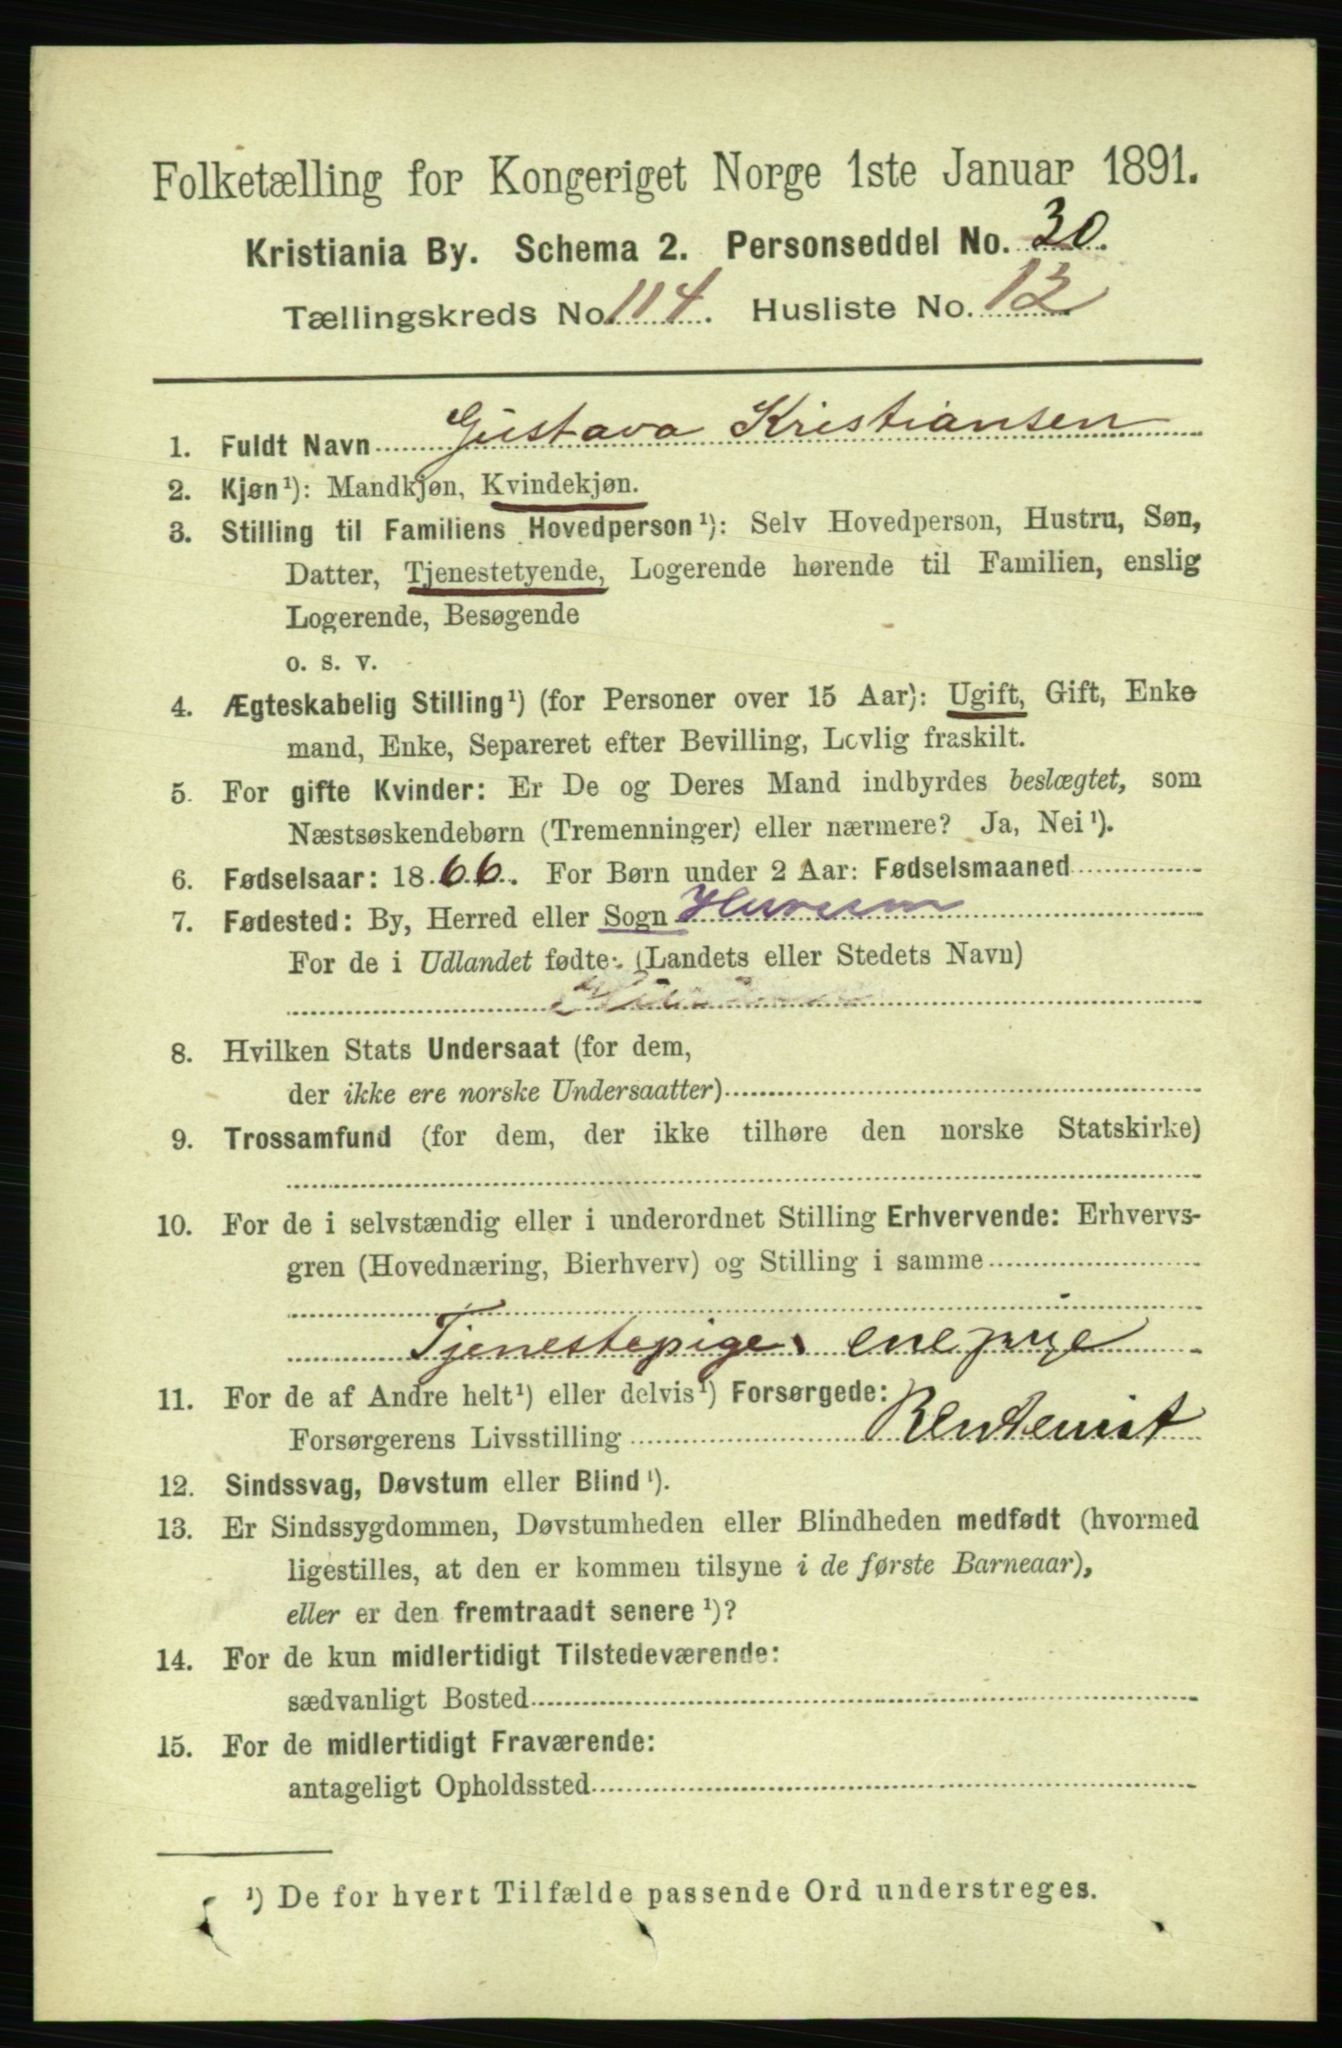 Folketælling for Kongeriget Norge 1ste Januar 1891.
Kristiania By. Schema 2. Personseddel No. 30.
Tællingskreds No. 114. Husliste No. 12
1. Fuldt Navn Gustava Kristiansen
2. Kjøn¹): Mandkjøn, Kvindekjøn.
3. Stilling til Familiens Hovedperson¹): Selv Hovedperson, Hustru, Søn,
Datter, Tjenestetyende, Logerende hørende til Familien, enslig
Logerende, Besøgende
o. s. v.
4. Ægteskabelig Stilling¹) (for Personer over 15 Aar): Ugift, Gift, Enke
mand, Enke, Separeret efter Bevilling, Lovlig fraskilt.
5. For gifte Kvinder: Er De og Deres Mand indbyrdes beslægtet, som
Næstsøskendebørn (Tremenninger) eller nærmere? Ja, Nei¹).
6. Fødselsaar: 1866. For Børn under 2 Aar: Fødselsmaaned
7. Fødested: By, Herred eller Sogn Hurum
For de i Udlandet fødte: (Landets eller Stedets Navn)
8. Hvilken Stats Undersaat (for dem,
der ikke ere norske Undersaatter)
9. Trossamfund (for dem, der ikke tilhøre den norske Statskirke)
10. For de i selvstændig eller i underordnet Stilling Erhvervende: Erhvervs-
gren (Hovednæring, Bierhverv) og Stilling i samme
Tjenestepige, enepige
11. For de af Andre helt¹) eller delvis¹) Forsørgede:
Forsørgerens Livsstilling Rentenist
12. Sindssvag, Døvstum eller Blind¹).
13. Er Sindssygdommen, Døvstumheden eller Blindheden medfødt (hvormed
ligestilles, at den er kommen tilsyne i de første Barneaar),
eller er den fremtraadt senere¹)?
14. For de kun midlertidigt Tilstedeværende:
sædvanligt Bosted
15. For de midlertidigt Fraværende:
antageligt Opholdssted
¹) De for hvert Tilfælde passende Ord understreges.